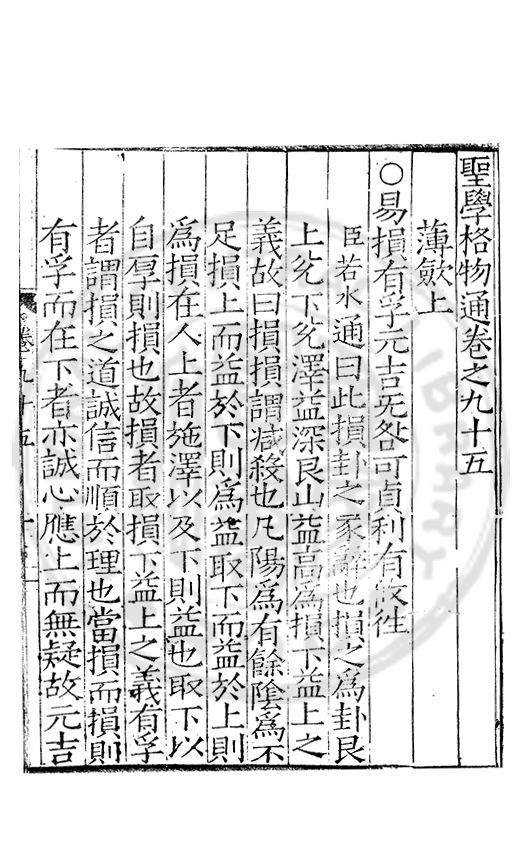 聖學格物通卷之九十五
薄斂上
〇易損有孚元吉旡咎可貞利有攸往
臣若水通曰此損卦之彖辭也損之爲卦艮
上兊下兊澤益深艮山益高爲損下益上之
義故曰損損謂减殺也凡陽爲有餘陰爲不
足損上而益於下則爲益取下而益於上則
爲損在人上者施澤以及下則益也取下以
自厚則損也故損者取損下益上之義有孚
者謂損之道誠信而順於理也當損而損則
有孚而在下者亦誠心應上而無疑故元吉
卷九十五